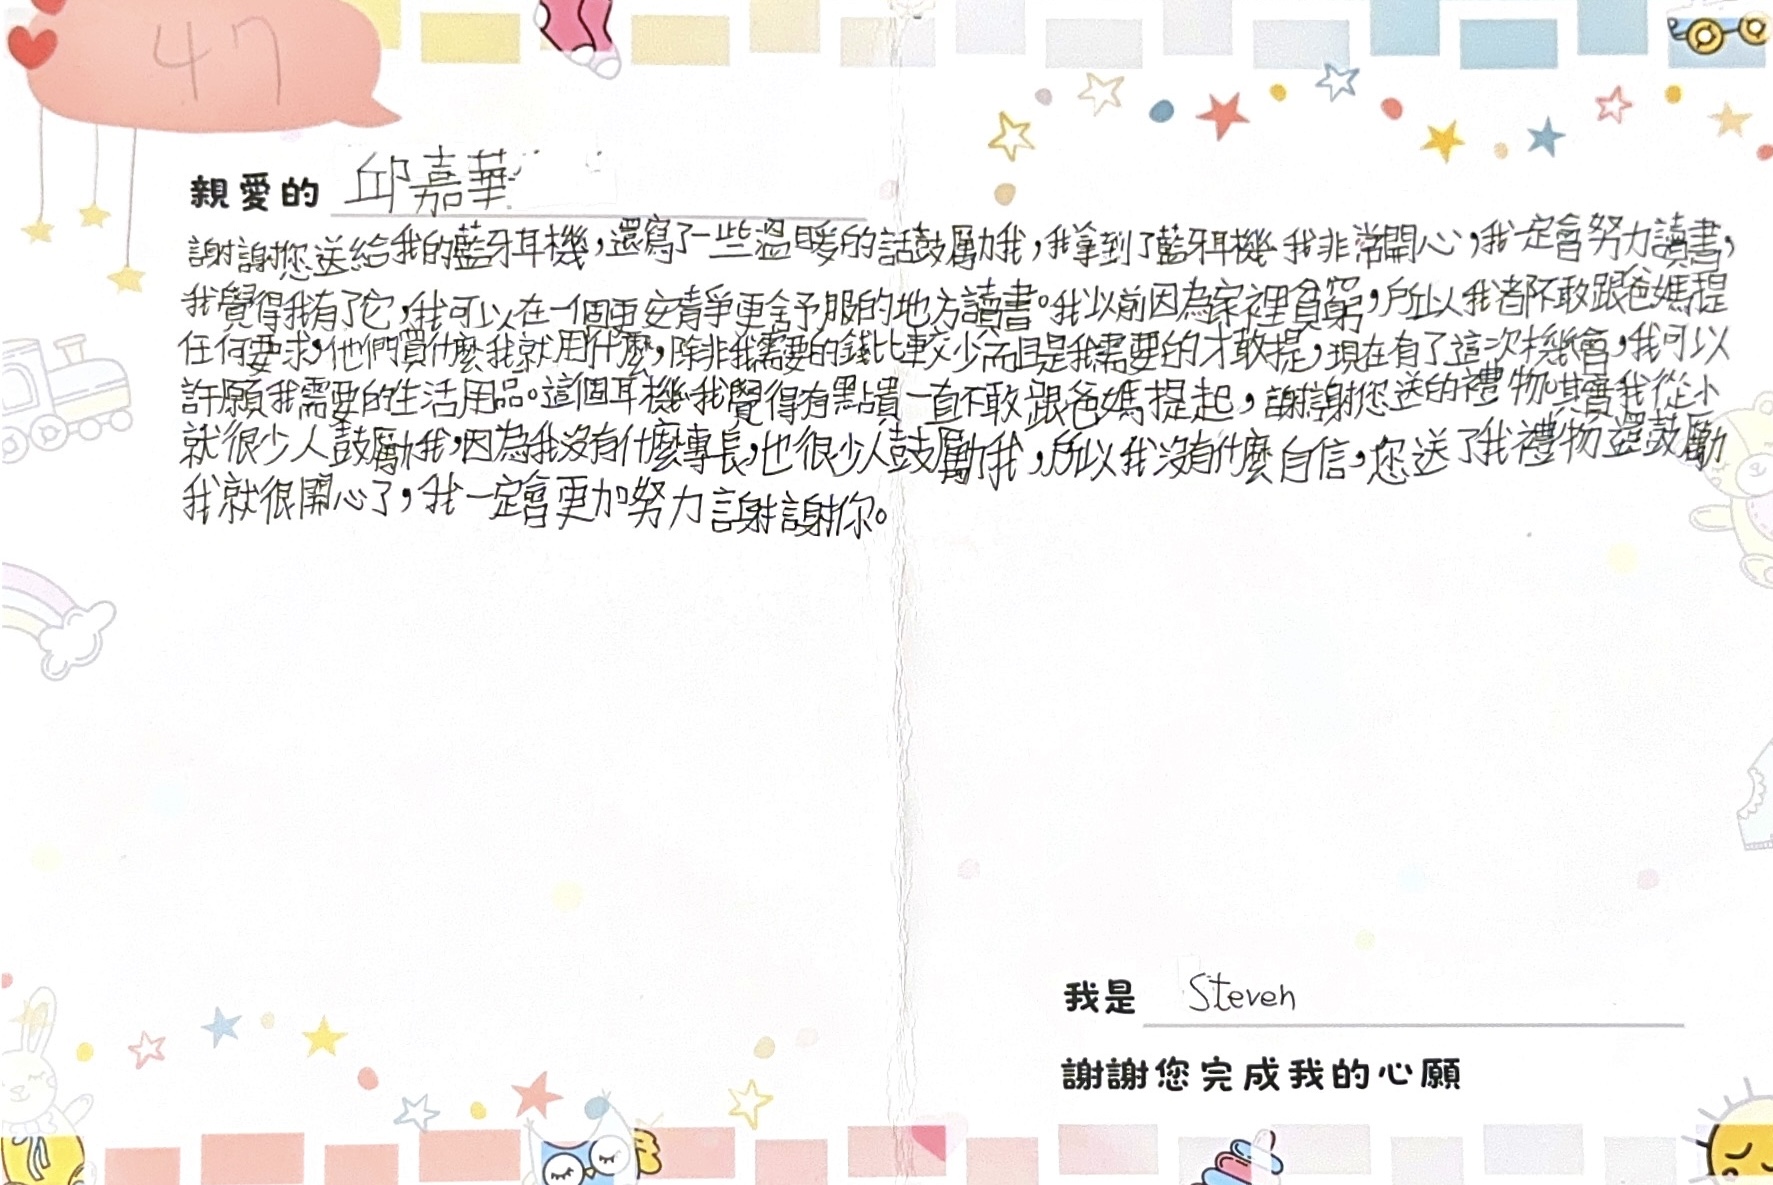 47
親愛的 邱嘉華
謝謝您送給我的藍牙耳機，還寫了一些溫暖的話鼓勵我，我拿到了藍牙耳機我非常開心，我一定會努力讀書，
我覺得我有了它，我可以在一個更安靜更舒服的地方讀書。我以前因為家裡貧窮，所以我都不敢跟爸媽提
任何要求，他們買什麼我就用什麼，除非我需要的錢比較少而且是我需要的才敢提，現在有了這次機會，我可以
許願我需要的生活用品。這個耳機我覺得有點貴一直不敢跟爸媽提起，謝謝您送的禮物。其實我從小
就很少人鼓勵我，因為我沒有什麼專長，也很少人鼓勵我，所以我沒有什麼自信，您送了我禮物還鼓勵
我就很開心了，我一定會更加努力謝謝你。
我是 Steven
謝謝您完成我的心願